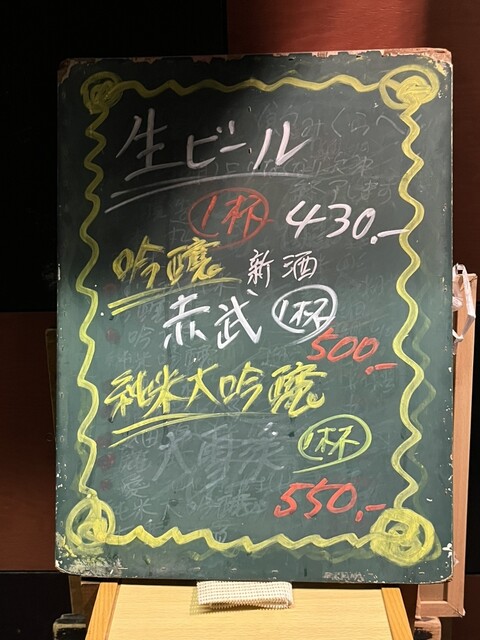 生ビール
1杯 430.-
吟醸 新酒
赤武 1杯
500.-
純米大吟醸
1杯
550.-